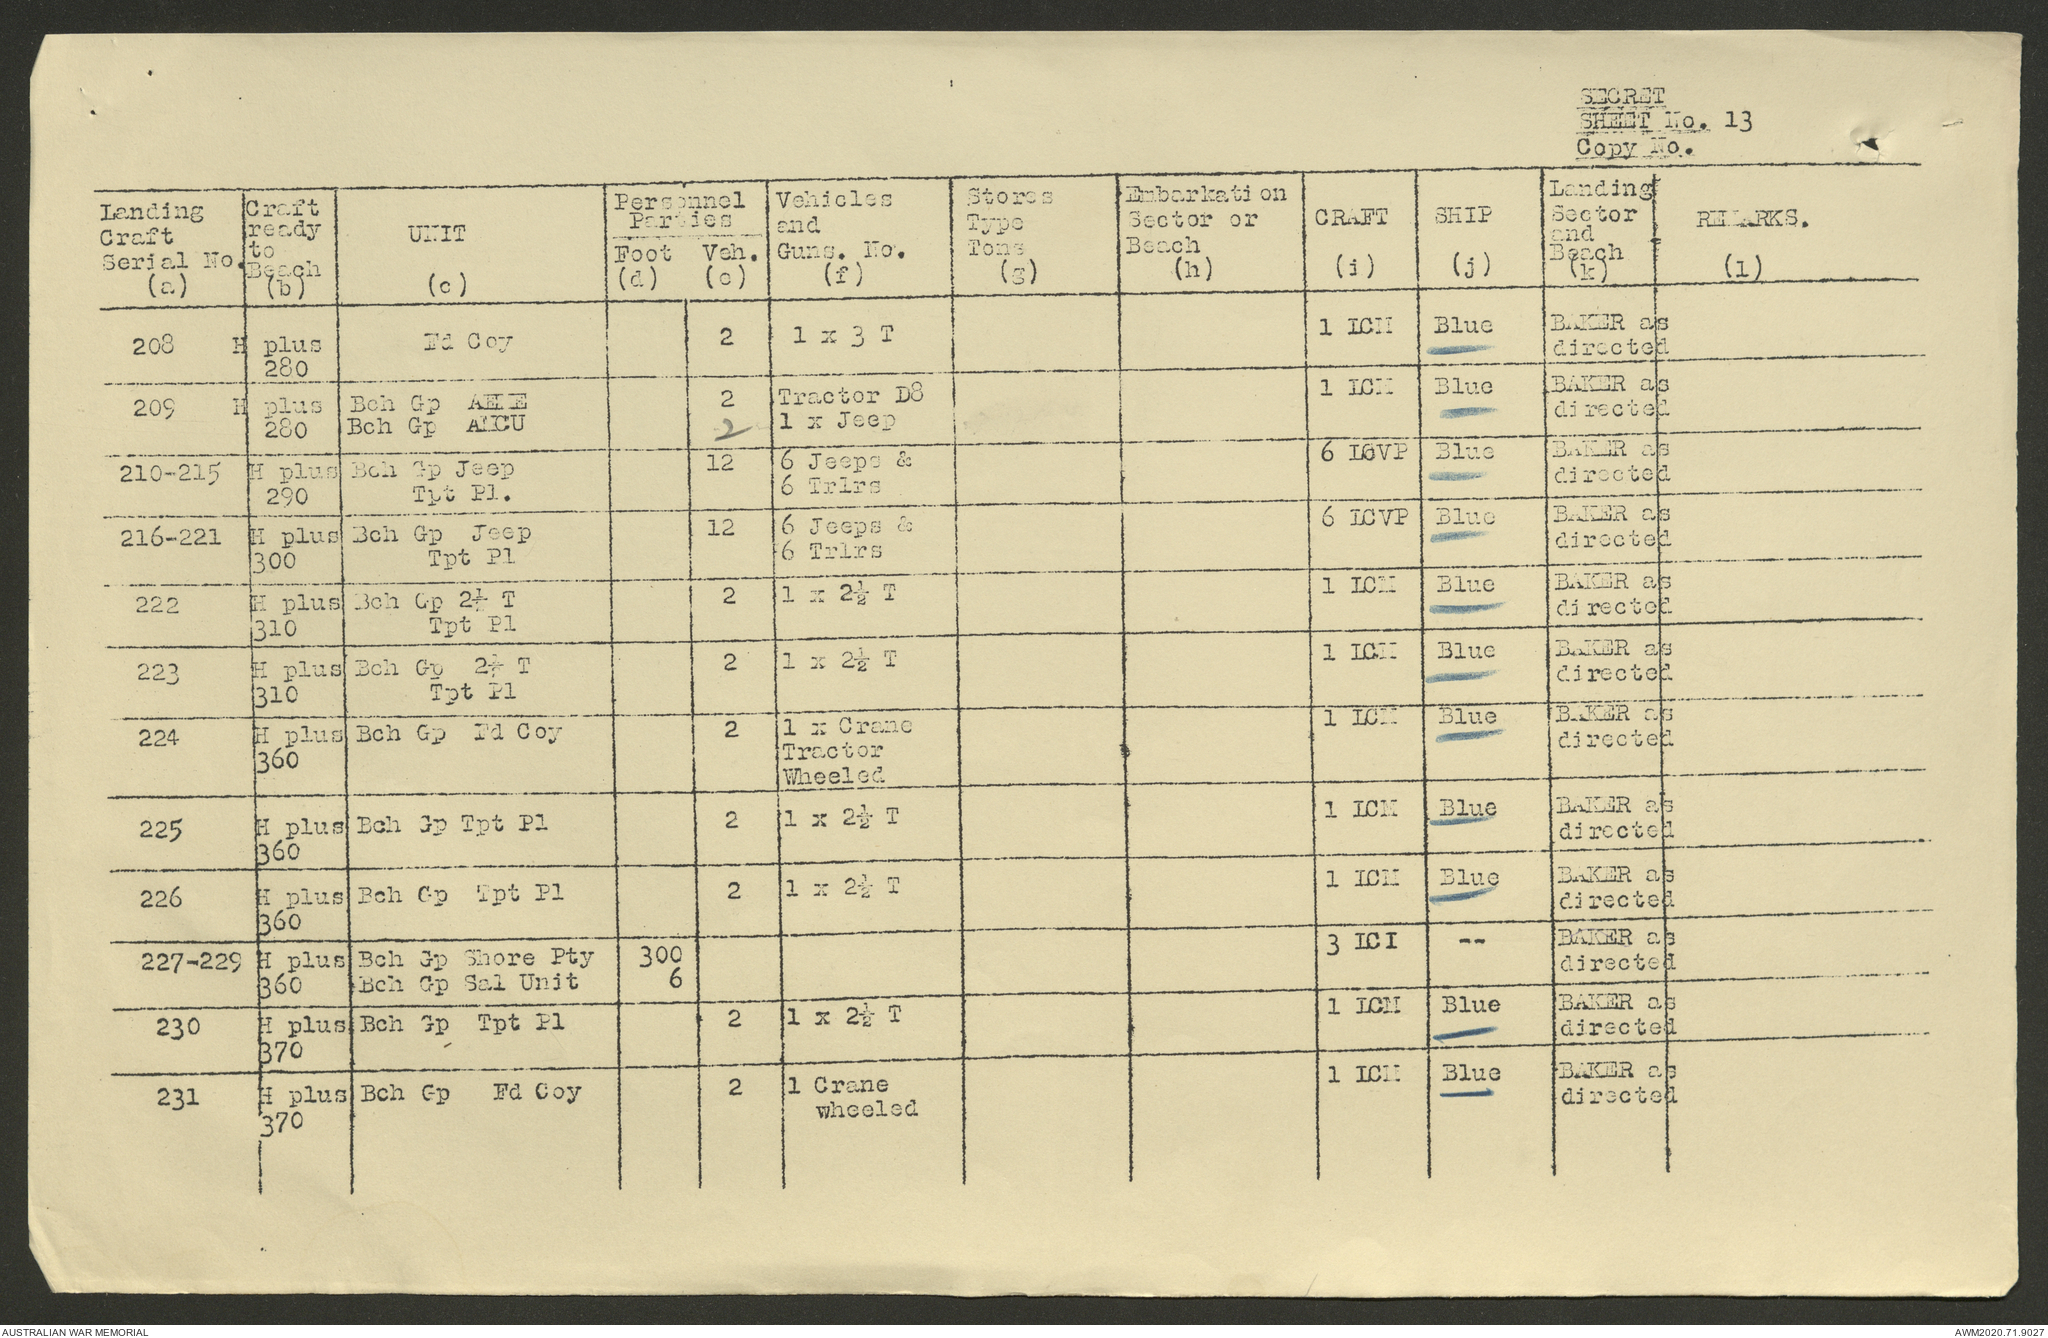 SECRET
SHEET No. 13
Copy No.
Landing Craft Serial No. (a)
Craft ready to Beach (b)
UNIT (c)
Personnel Parties
Foot (d)
Veh. (e)
Vehicles and Guns. No. (f)
Stores Type Tons (g)
Embarkation Sector or Beach (h)
CRAFT (i)
SHIP (j)
Landing Sector and Beach (k)
REMARKS. (l)
208 H plus 280 Fd Coy 2 1 x 3 T 1 LCM Blue BAKER as directed
209 H plus 280 Bch Gp AEME 2 Tractor D8 1 LCM Blue BAKER as directed
Bch Gp AMCU 2 1 x Jeep
210-215 H plus 290 Bch Gp Jeep Tpt Pl. 12 6 Jeeps & 6 Trlrs 6 LCVP Blue BAKER as directed
216-221 H plus 300 Bch Gp Jeep Tpt Pl 12 6 Jeeps & 6 Trlrs 6 LCVP Blue BAKER as directed
222 H plus 310 Bch Gp 2½ T Tpt Pl 2 1 x 2½ T 1 LCM Blue BAKER as directed
223 H plus 310 Bch Gp 2½ T Tpt Pl 2 1 x 2½ T 1 LCM Blue BAKER as directed
224 H plus 360 Bch Gp Fd Coy 2 1 x Crane Tractor Wheeled 1 LCM Blue BAKER as directed
225 H plus 360 Bch Gp Tpt Pl 2 1 x 2½ T 1 LCM Blue BAKER as directed
226 H plus 360 Bch Gp Tpt Pl 2 1 x 2½ T 1 LCM Blue BAKER as directed
227-229 H plus 360 Bch Gp Shore Pty 300 3 LCI -- BAKER as directed
Bch Gp Sal Unit 6
230 H plus 370 Bch Gp Tpt Pl 2 1 x 2½ T 1 LCM Blue BAKER as directed
231 H plus 370 Bch Gp Fd Coy 2 1 Crane wheeled 1 LCM Blue BAKER as directed
AUSTRALIAN WAR MEMORIAL
AWM2020.71.9027